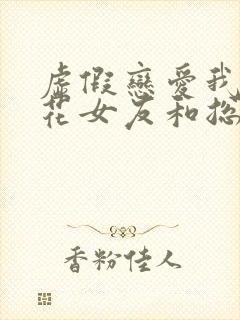 虛假戀愛我
花女友和總
香粉佳人